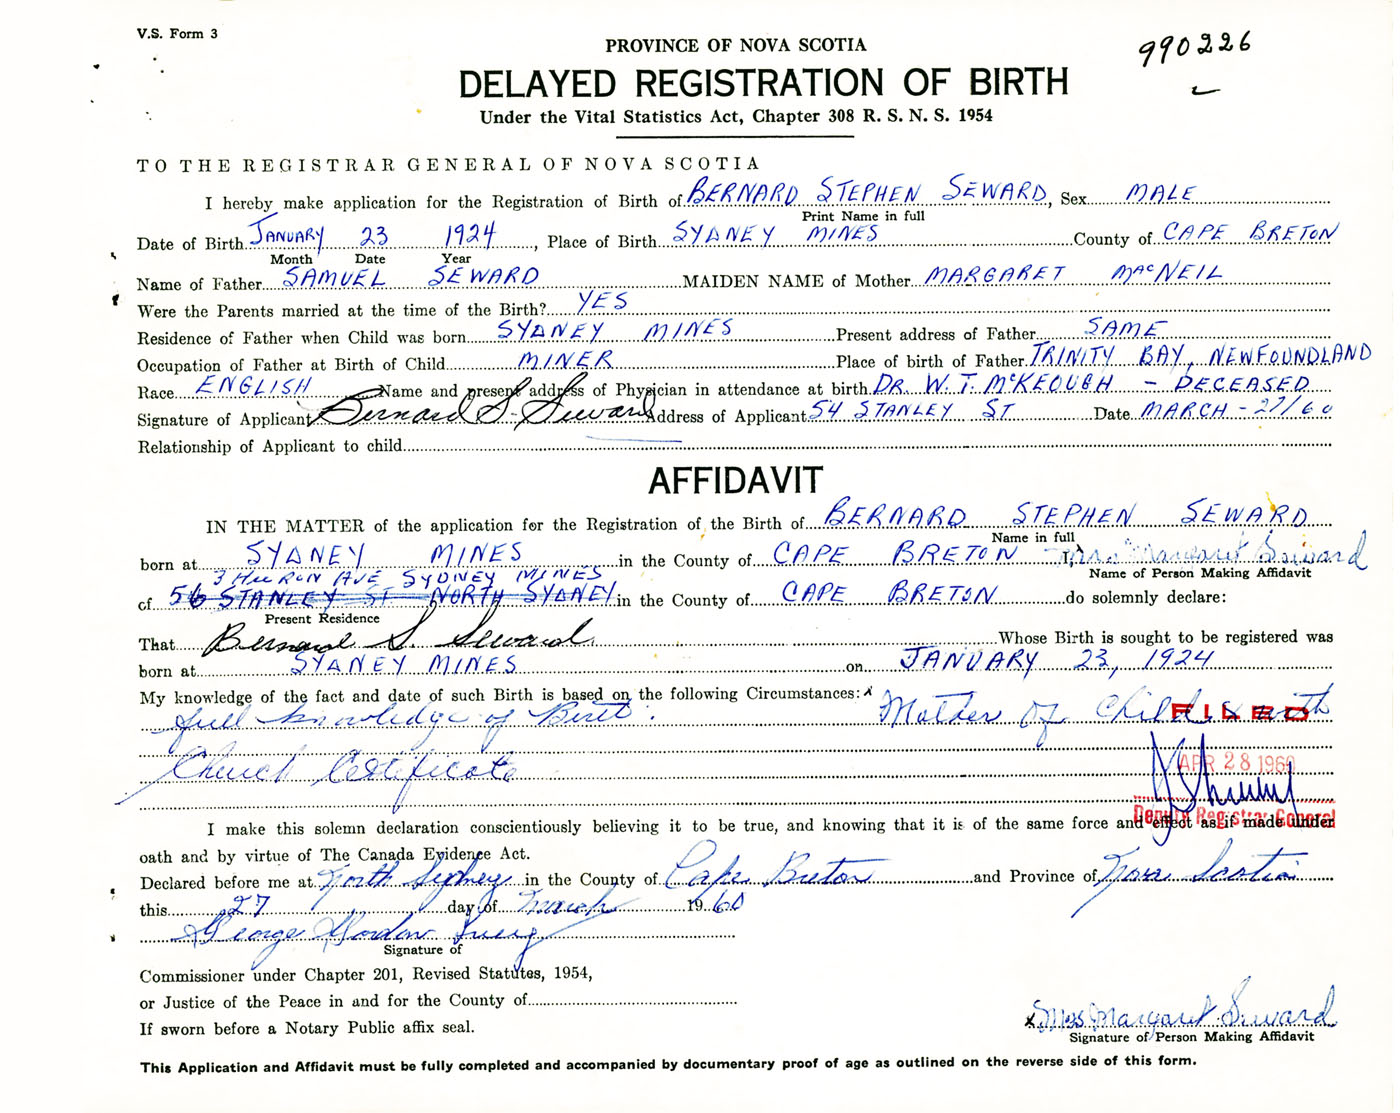 V.S. Form 3
990226
PROVINCE OF NOVA SCOTIA
DELAYED REGISTRATION OF BIRTH
Under the Vital Statistics Act, Chapter 308 R. S. N. S. 1954
TO THE REGISTRAR GENERAL OF NOVA SCOTIA
I hereby make application for the Registration of Birth of BERNARD STEPHEN SEWARD, Sex MALE
Print Name in full
Date of Birth JANUARY 23 1924, Place of Birth SYDNEY MINES County of CAPE BRETON
Month Date Year
Name of Father SAMUEL SEWARD MAIDEN NAME of Mother MARGARET MACNEIL
Were the Parents married at the time of the Birth? YES
Residence of Father when Child was born SYDNEY MINES Present address of Father SAME
Occupation of Father at Birth of Child MINER Place of birth of Father TRINITY BAY, NEWFOUNDLAND
Race ENGLISH Name and present address of Physician in attendance at birth DR. W. T. MCKEOUGH - DECEASED
Signature of Applicant Bernard S. Seward Address of Applicant 54 STANLEY ST Date MARCH - 27/60
Relationship of Applicant to child
AFFIDAVIT
IN THE MATTER of the application for the Registration of the Birth of BERNARD STEPHEN SEWARD
Name in full
born at SYDNEY MINES in the County of CAPE BRETON I, Mrs Margaret Seward
Name of Person Making Affidavit
3 HURON AVE SYDNEY MINES
of 56 STANLEY ST NORTH SYDNEY in the County of CAPE BRETON do solemnly declare:
Present Residence
That Bernard S. Seward Whose Birth is sought to be registered was
born at SYDNEY MINES on JANUARY 23, 1924
My knowledge of the fact and date of such Birth is based on the following Circumstances:
Mother of Child & with
full knowledge of Birth.
FILED
Church Certificate
APR 28 1960
Deputy Registrar General
I make this solemn declaration conscientiously believing it to be true, and knowing that it is of the same force and effect as if made under
oath and by virtue of The Canada Evidence Act.
Declared before me at North Sydney in the County of Cape Breton and Province of Nova Scotia
this 27 day of March 1960
George Gordon
Signature of
Commissioner under Chapter 201, Revised Statutes, 1954,
or Justice of the Peace in and for the County of
If sworn before a Notary Public affix seal.
x Mrs Margaret Seward
Signature of Person Making Affidavit
This Application and Affidavit must be fully completed and accompanied by documentary proof of age as outlined on the reverse side of this form.